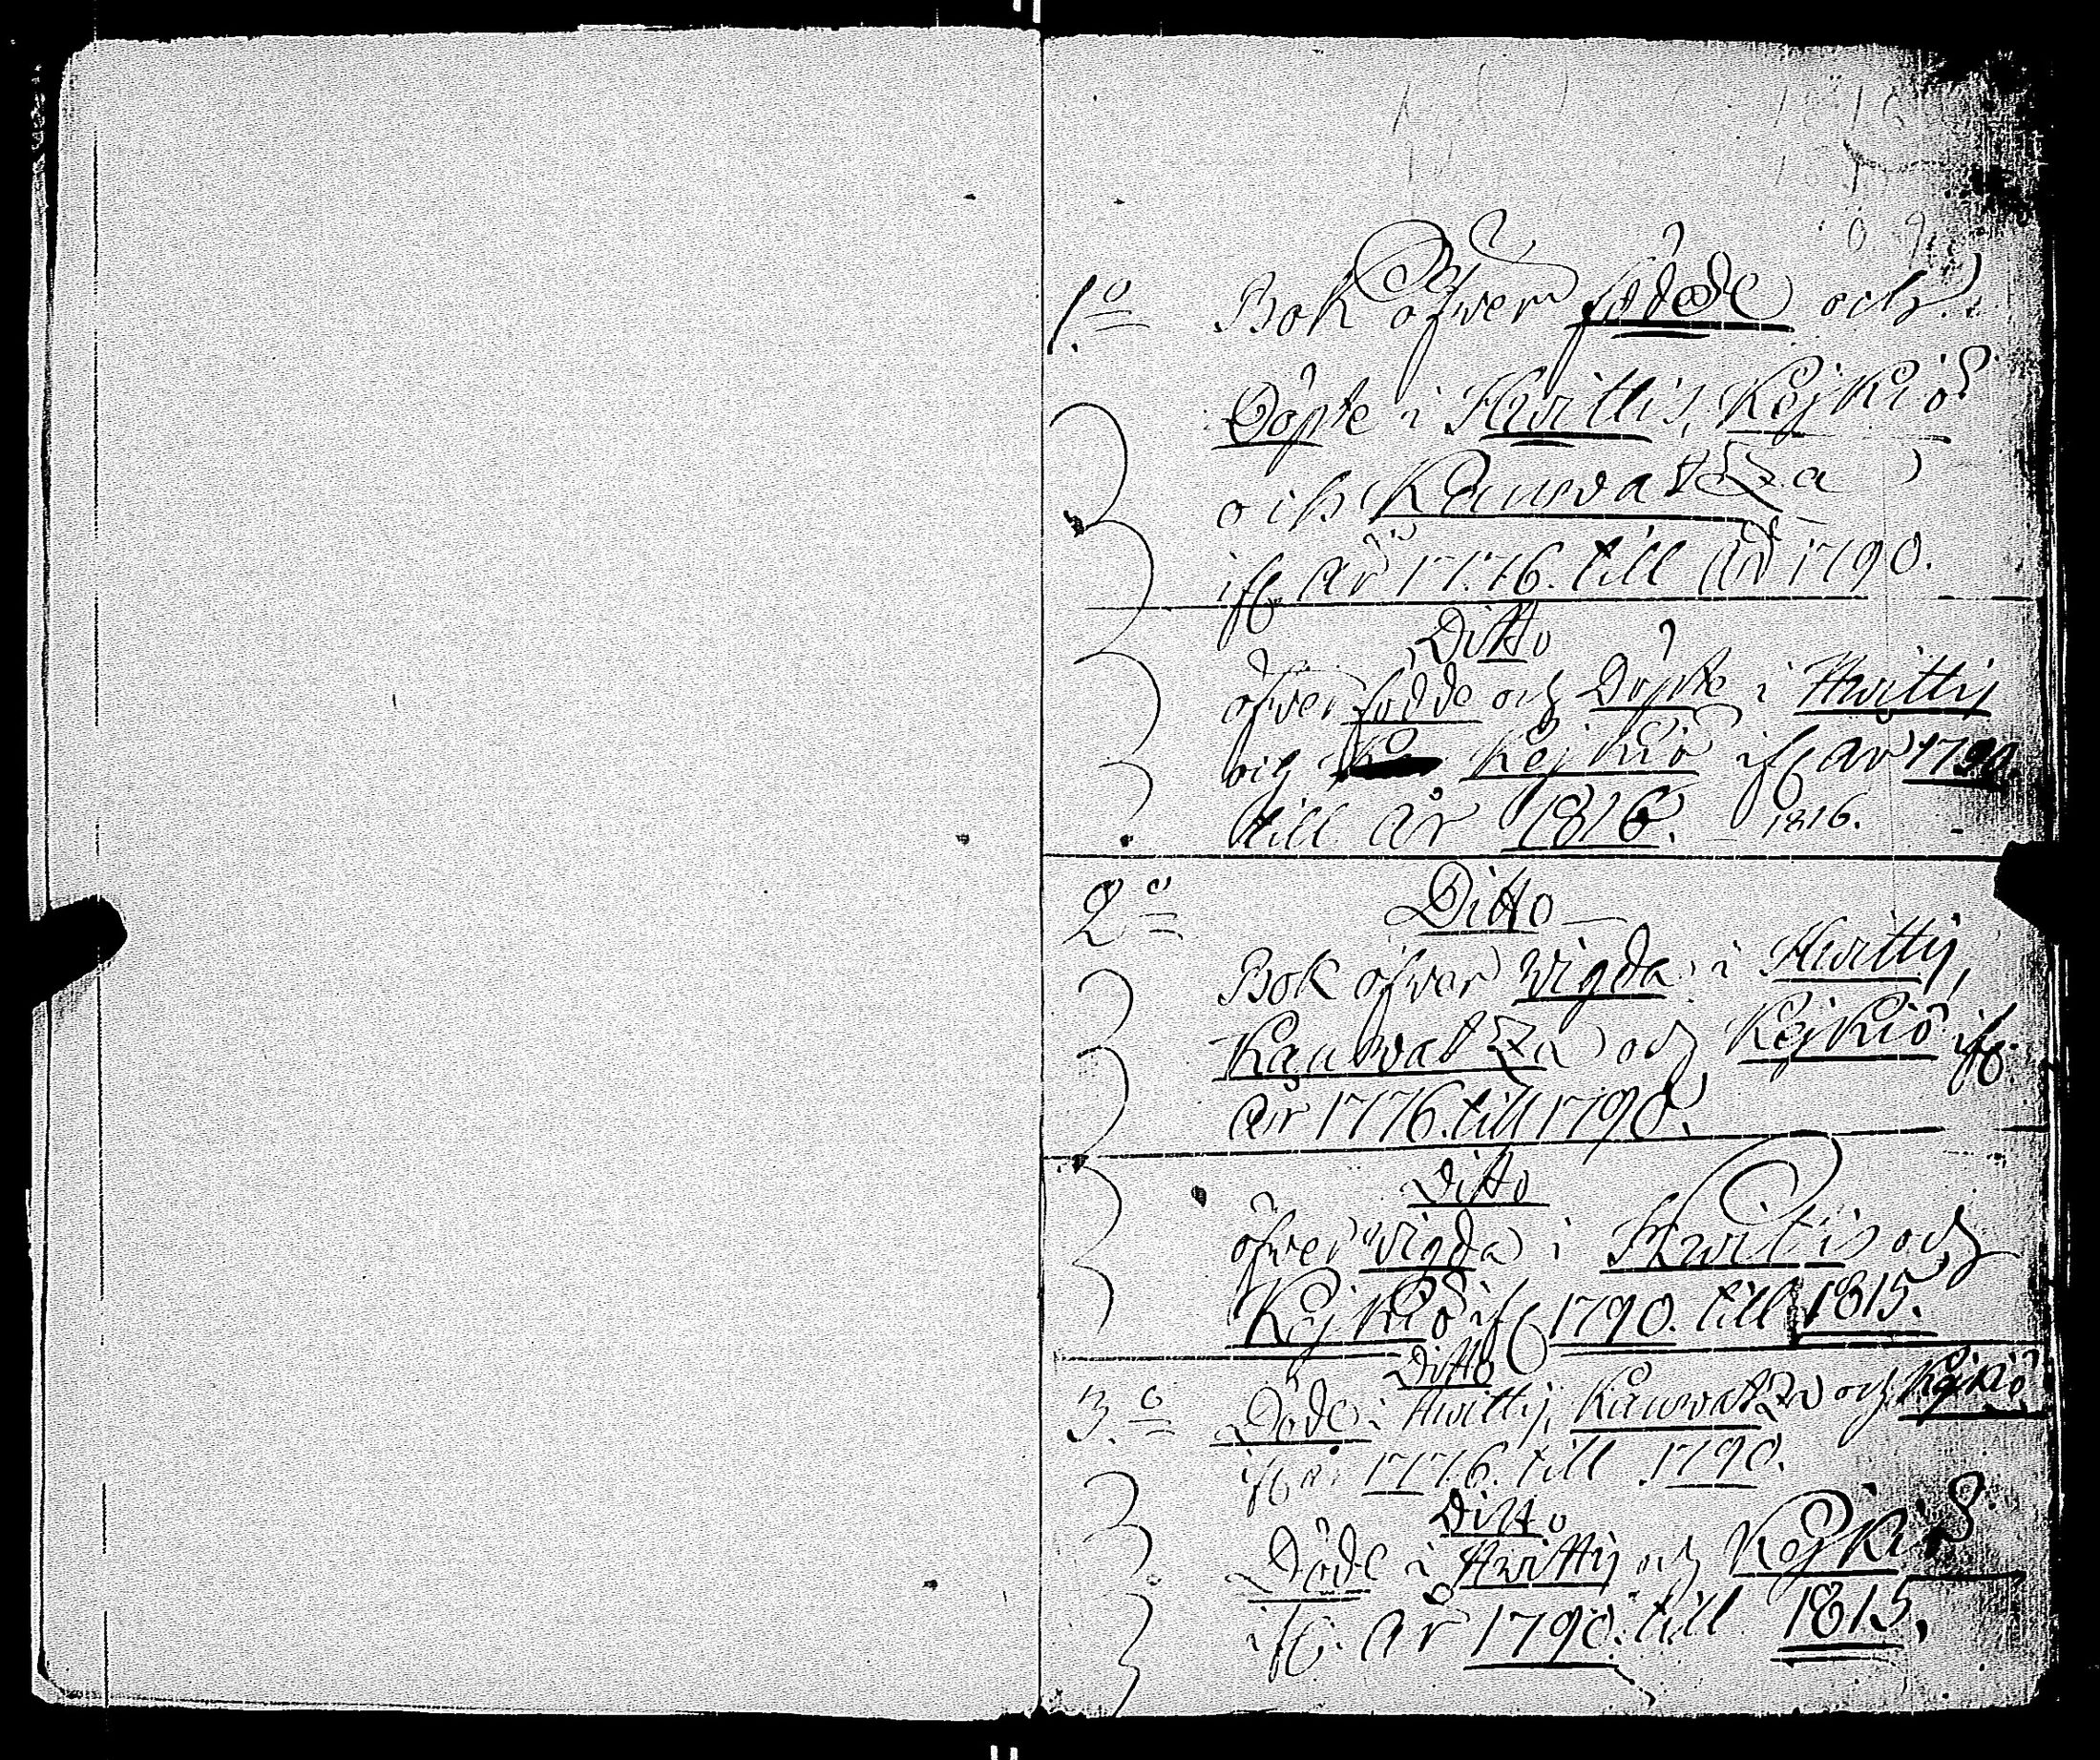 1.º Bok öfwer födde och
Döpte i Hwittis, Kejkiö
och Kauwatza
ifr. År 1776. till År 1790.
Ditto
öfwer födde och Döpte i Hwittis
och Kejkiö ifr År 1790.
till År 1816. 1816.
2º Ditto
Bok öfwer wigda i Hwittis,
Kauwatza och Kejkiö ifr.
År 1776. till 1790.
Ditto
öfwer wigda i Hwittis och
Kejkiö ifr 1790. till 1815.
Ditto
3.º Döde i Hwittis, Kauwatza och Kejkiö
ifr år 1776. till 1790.
Ditto
Döde i Hwittis och Kejkiö
ifr. År 1790. till 1815.